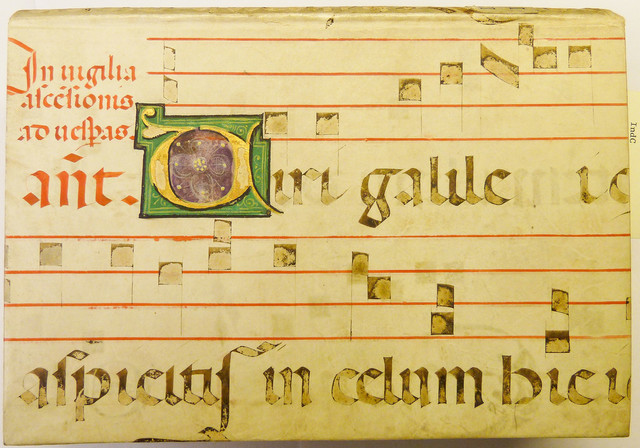 In uigilia
ascēsionis
ad uesꝑas.
añt. Uiri galile
aspicitis in celum hic
IndC